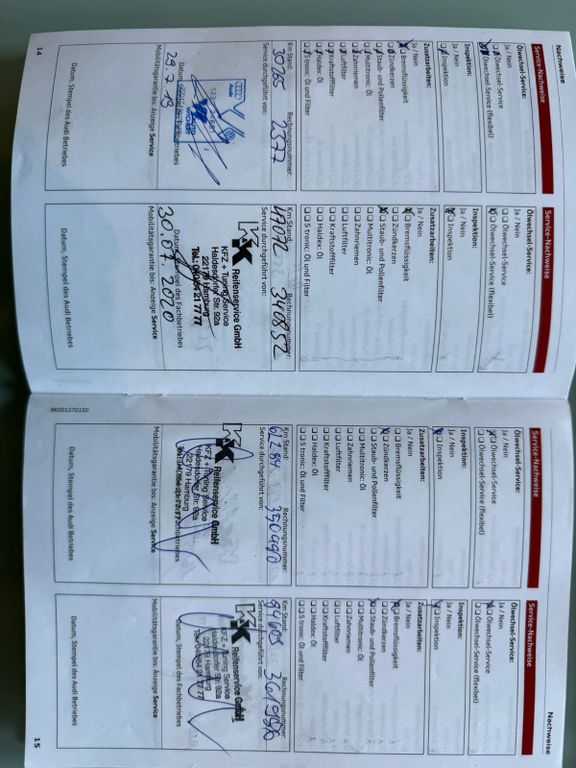 Nachweise
Service-Nachweise
Ölwechsel-Service:
Ja / Nein
Ölwechsel-Service
Ölwechsel-Service (flexibel)
Inspektion:
Ja / Nein
Inspektion
Zusatzarbeiten:
Ja / Nein
Bremsflüssigkeit
Zündkerzen
Staub- und Pollenfilter
Multitronic: Öl
Zahnriemen
Luftfilter
Kraftstofffilter
Haldex: Öl
S tronic: Öl und Filter
Km Stand: Rechnungsnummer:
2377
Service durchgeführt von:
Audi
Datum, Stempel des Fachbetriebes
29.7.19
Mobilitätsgarantie bis: Anzeige Service
Datum, Stempel des Audi Betriebes
14
Service-Nachweise
Ölwechsel-Service:
Ja / Nein
Ölwechsel-Service
Ölwechsel-Service (flexibel)
Inspektion:
Ja / Nein
Inspektion
Zusatzarbeiten:
Ja / Nein
Bremsflüssigkeit
Zündkerzen
Staub- und Pollenfilter
Multitronic: Öl
Zahnriemen
Luftfilter
Kraftstofffilter
Haldex: Öl
S tronic: Öl und Filter
Km Stand: Rechnungsnummer:
340852
Service durchgeführt von:
Reifenservice GmbH
KFZ + Tuning Service
Haldesdorfer Str. 92a
22179 Hamburg
Datum, Stempel des Fachbetriebes
30.07.2020
Mobilitätsgarantie bis: Anzeige Service
Datum, Stempel des Audi Betriebes
8K0012701SD
Service-Nachweise
Ölwechsel-Service:
Ja / Nein
Ölwechsel-Service
Ölwechsel-Service (flexibel)
Inspektion:
Ja / Nein
Inspektion
Zusatzarbeiten:
Ja / Nein
Bremsflüssigkeit
Zündkerzen
Staub- und Pollenfilter
Multitronic: Öl
Zahnriemen
Luftfilter
Kraftstofffilter
Haldex: Öl
S tronic: Öl und Filter
Km Stand: Rechnungsnummer:
350990
Service durchgeführt von:
Reifenservice GmbH
KFZ + Tuning Service
Haldesdorfer Str. 92a
22179 Hamburg
Datum, Stempel des Fachbetriebes
Mobilitätsgarantie bis: Anzeige Service
Datum, Stempel des Audi Betriebes
Nachweise
Service-Nachweise
Ölwechsel-Service:
Ja / Nein
Ölwechsel-Service
Ölwechsel-Service (flexibel)
Inspektion:
Ja / Nein
Inspektion
Zusatzarbeiten:
Ja / Nein
Bremsflüssigkeit
Zündkerzen
Staub- und Pollenfilter
Multitronic: Öl
Zahnriemen
Luftfilter
Kraftstofffilter
Haldex: Öl
S tronic: Öl und Filter
Km Stand: Rechnungsnummer:
Service durchgeführt von:
Reifenservice GmbH
KFZ + Tuning Service
Haldesdorfer Str. 92a
22179 Hamburg
Datum, Stempel des Fachbetriebes
Mobilitätsgarantie bis: Anzeige Service
Datum, Stempel des Audi Betriebes
15